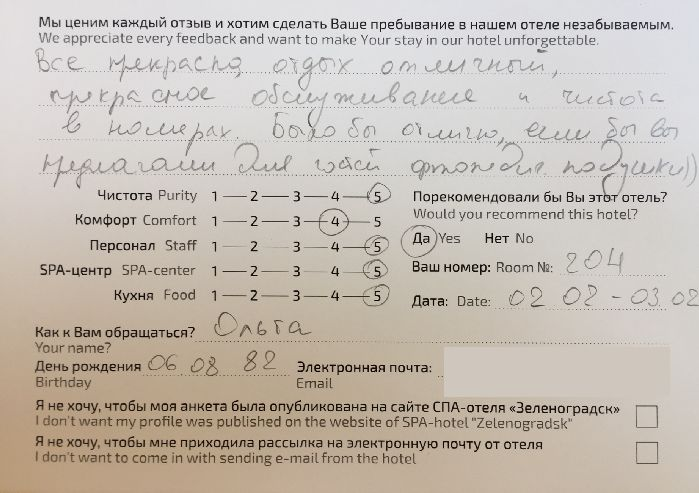 Мы ценим каждый отзыв и хотим сделать Ваше пребывание в нашем отеле незабываемым.
We appreciate every feedback and want to make Your stay in our hotel unforgettable.
Все прекрасно, отдых отличный,
прекрасное обслуживание и чистота
в номерах. Было бы отлично, если бы вы
предлагали для гостей подушки))
Чистота Purity 1 — 2 — 3 — 4 — 5
Комфорт Comfort 1 — 2 — 3 — 4 — 5
Персонал Staff 1 — 2 — 3 — 4 — 5
SPA-центр SPA-center 1 — 2 — 3 — 4 — 5
Кухня Food 1 — 2 — 3 — 4 — 5
Порекомендовали бы Вы этот отель?
Would you recommend this hotel?
Да Yes Нет No
Ваш номер: Room №: 204
Дата: Date: 02 02 - 03.02
Как к Вам обращаться? Ольга
Your name?
День рождения 06 08 82 Электронная почта:
Birthday Email
Я не хочу, чтобы моя анкета была опубликована на сайте СПА-отеля «Зеленоградск»
I don't want my profile was published on the website of SPA-hotel "Zelenogradsk"
Я не хочу, чтобы мне приходила рассылка на электронную почту от отеля
I don't want to come in with sending e-mail from the hotel